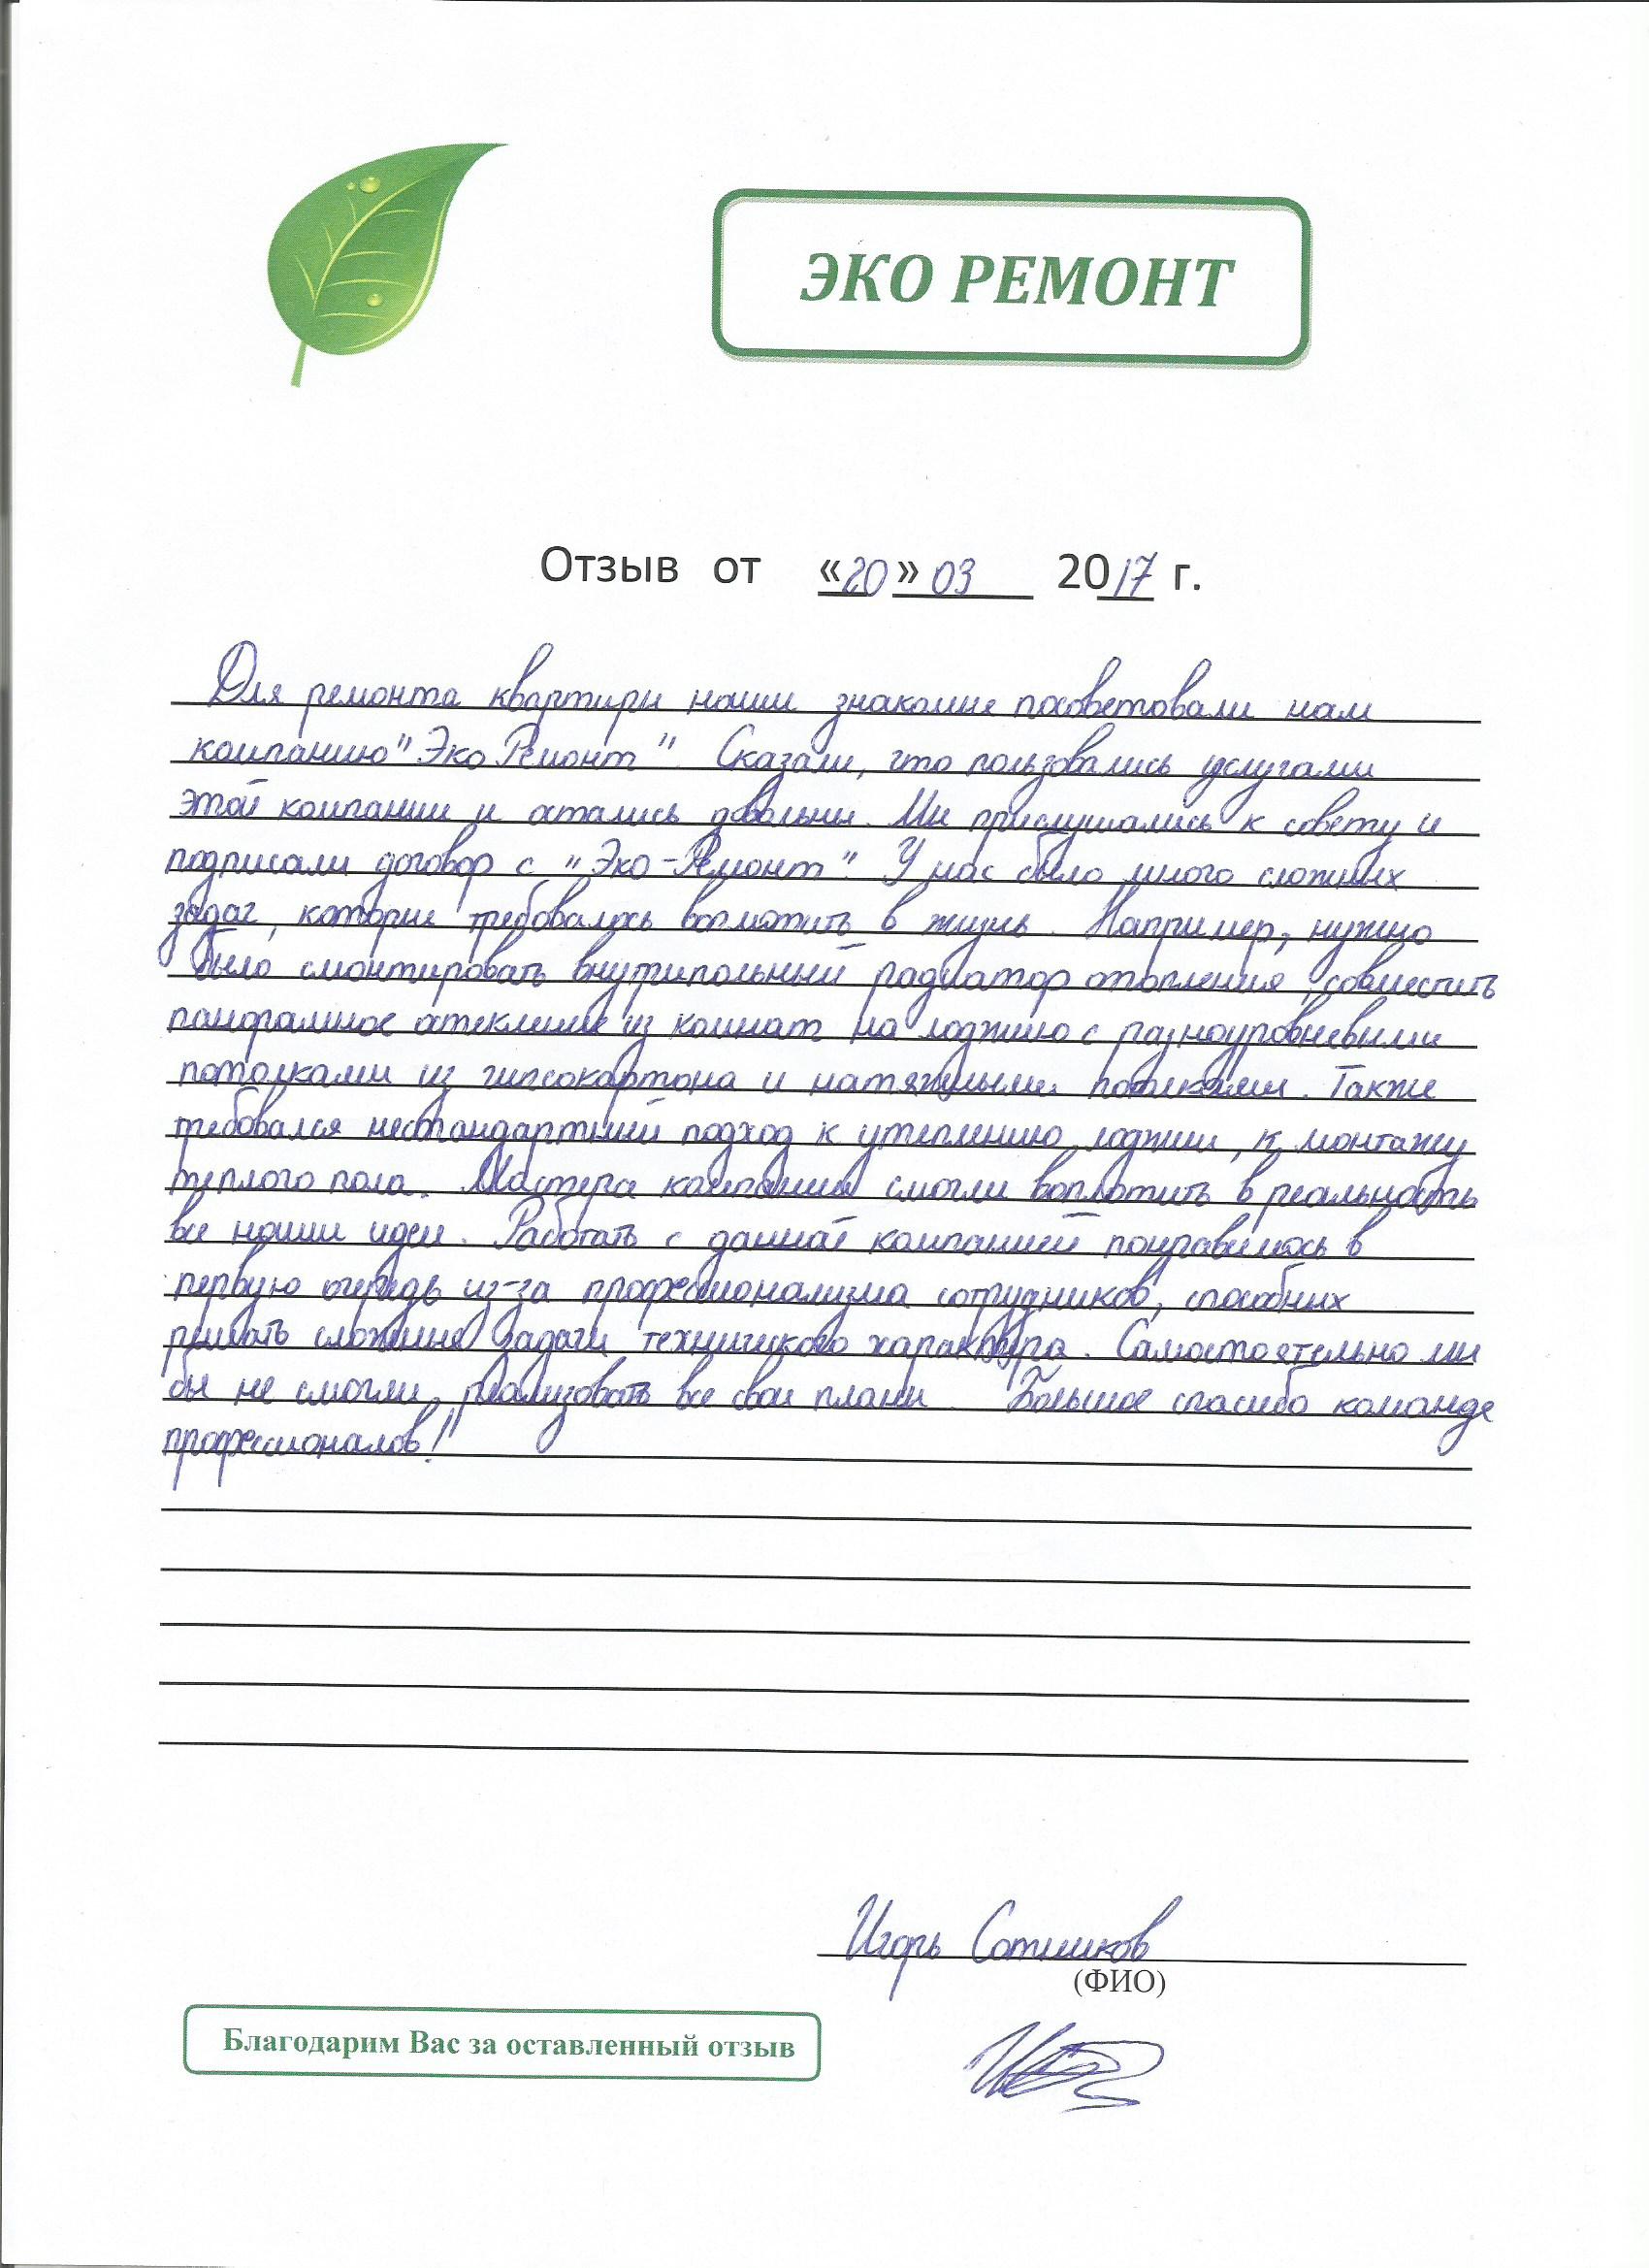 ЭКО РЕМОНТ
Отзыв от «20» 03 2017 г.
Для ремонта квартиры наши знакомые посоветовали нам
компанию "Эко Ремонт". Сказали, что пользовались услугами
этой компании и остались довольны. Мы прислушались к совету и
подписали договор с "Эко-Ремонт". У нас было много сложных
задач, которые требовалось воплотить в жизнь. Например, нужно
было смонтировать внутрипольный радиатор отопления, совместить
панорамное остекление из комнат на лоджию с разноуровневыми
потолками из гипсокартона и натяжными потолками. Также
требовался нестандартный подход к утеплению лоджии, к монтажу
теплого пола. Мастера компании смогли воплотить в реальность
все наши идеи. Работать с данной компанией понравилось в
первую очередь из-за профессионализма сотрудников, способных
решать сложные задачи технического характера. Самостоятельно мы
бы не смогли реализовать все свои планы. Большое спасибо команде
профессионалов!
Игорь Сотников
(ФИО)
Благодарим Вас за оставленный отзыв